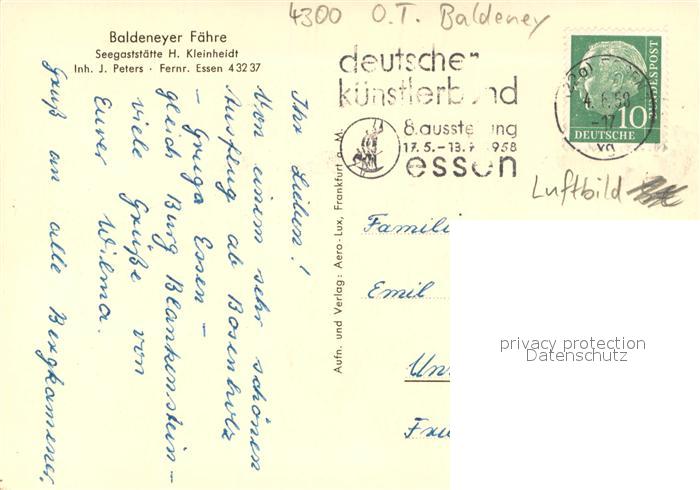 4300 O.T. Baldeney
Baldeneyer Fähre
Seegaststätte H. Kleinheidt
Inh. J. Peters · Fernr. Essen 4 32 37
deutscher
künstlerbund
8. ausstellung
17. 5. – 13. 7. 1958
essen
4. 6. 58
-17
10
DEUTSCHE
BUNDESPOST
Luftbild
Ihr Lieben!
Von einem sehr schönen
Ausflug ab Bosenholz
– Gruga Essen –
gleich Burg Blankenstein –
viele Grüße von
Eurer Wilma.
Gruß an alle Bergkamener.
Aufn. und Verlag: Aero-Lux, Frankfurt a. M.
Famili
Emil
Un
privacy protection
Datenschutz